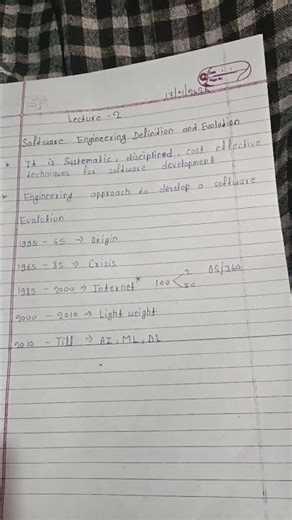 Lecture - 2
Software Engineering Definition and Evolution
* It is Systematic, disciplined, cost effective
techniques for software development
* Engineering approach to develop a software
Evolution
1945 - 65 → Origin
1965 - 85 → Crisis
1985 - 2000 → Internet* 100 < 2 OS/360
50
2000 - 2010 → Light weight
2010 - Till → AI, ML, DL